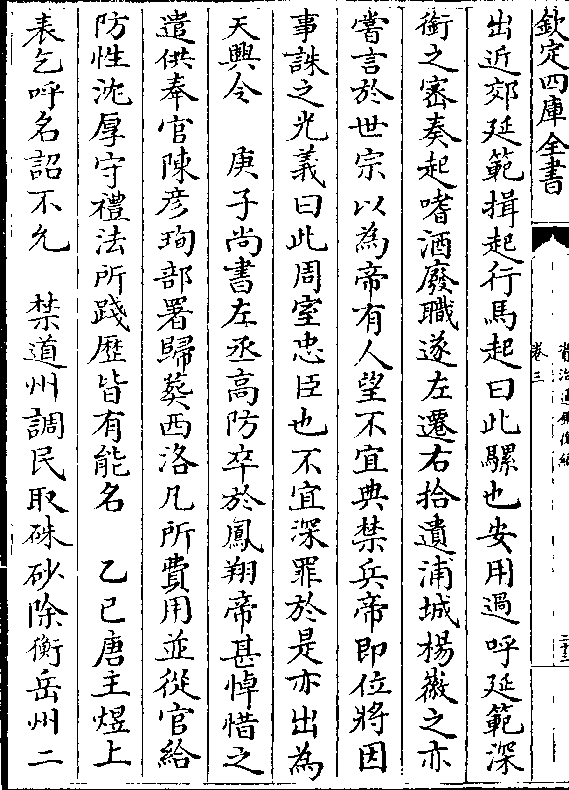 欽定四庫全書
卷三
出近郊延範揖起行馬起曰此騾也安用過呼延範深
銜之密奏起嗜酒廢職遂左遷右拾遺浦城楊㣲之亦
嘗言於世宗以為帝有人望不宜典禁兵帝即位將因
事誅之光義曰此周室忠臣也不宜深罪於是亦出為
天興令　庚子尚書左丞高防卒於鳳翔帝甚悼惜之
遣供奉官陳彦珣部署歸葬西洛凡所費用並從官給
防性沈厚守禮法所踐歴皆有能名　乙巳唐主煜上
表乞呼名詔不允　禁道州調民取硃砂除衡岳州二